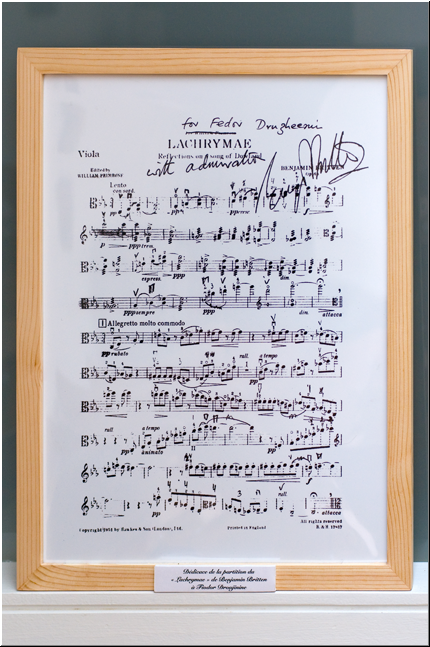 for Fedor Druzheenin
LACHRYMAE
Viola
Reflections on a song of Dowland
Edited by
WILLIAM PRIMROSE
with admiration
BENJAMIN
Lento
con sord.
pp
ppp
p
ppp trem.
express.
pp
dim.
ppp sempre
ppp
dim.
attacca
1 Allegretto molto commodo
pp rubato
rall.
a tempo
pp
rall
a tempo
pp animato
f
rall.
pp
pp
attacca
Copyright 1951 by Hawkes & Son (London), Ltd.
Printed in England
All rights reserved
Dédicace de la partition du
« Lachrymae » de Benjamin Britten
à Fiodor Droujinine